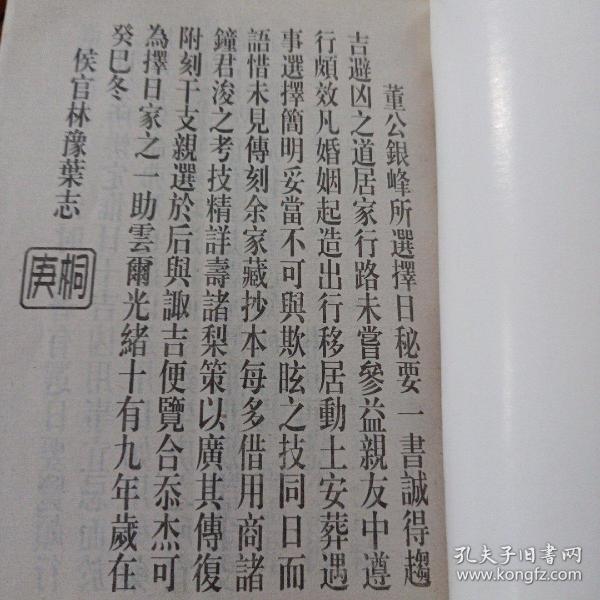 董公銀峰所選擇日秘要一書誠得趨
吉避凶之道居家行路未嘗參益親友中遵
行頗效凡婚姻起造出行移居動土安葬遇
事選擇簡明妥當不可與欺眩之技同日而
語惜未見傳刻余家藏抄本每多借用商諸
鐘君浚之考技精詳壽諸梨策以廣其傳復
附刻干支親選於后與諏吉便覽合忝杰可
為擇日家之一助雲爾光緒十有九年歲在
癸巳冬
侯官林豫葉志
桐庚
孔夫子旧书网
www.kongfz.com